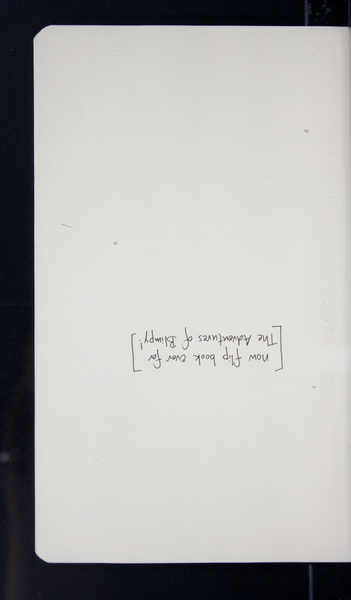 [now flip book over for
The Adventures of Blimpy!]